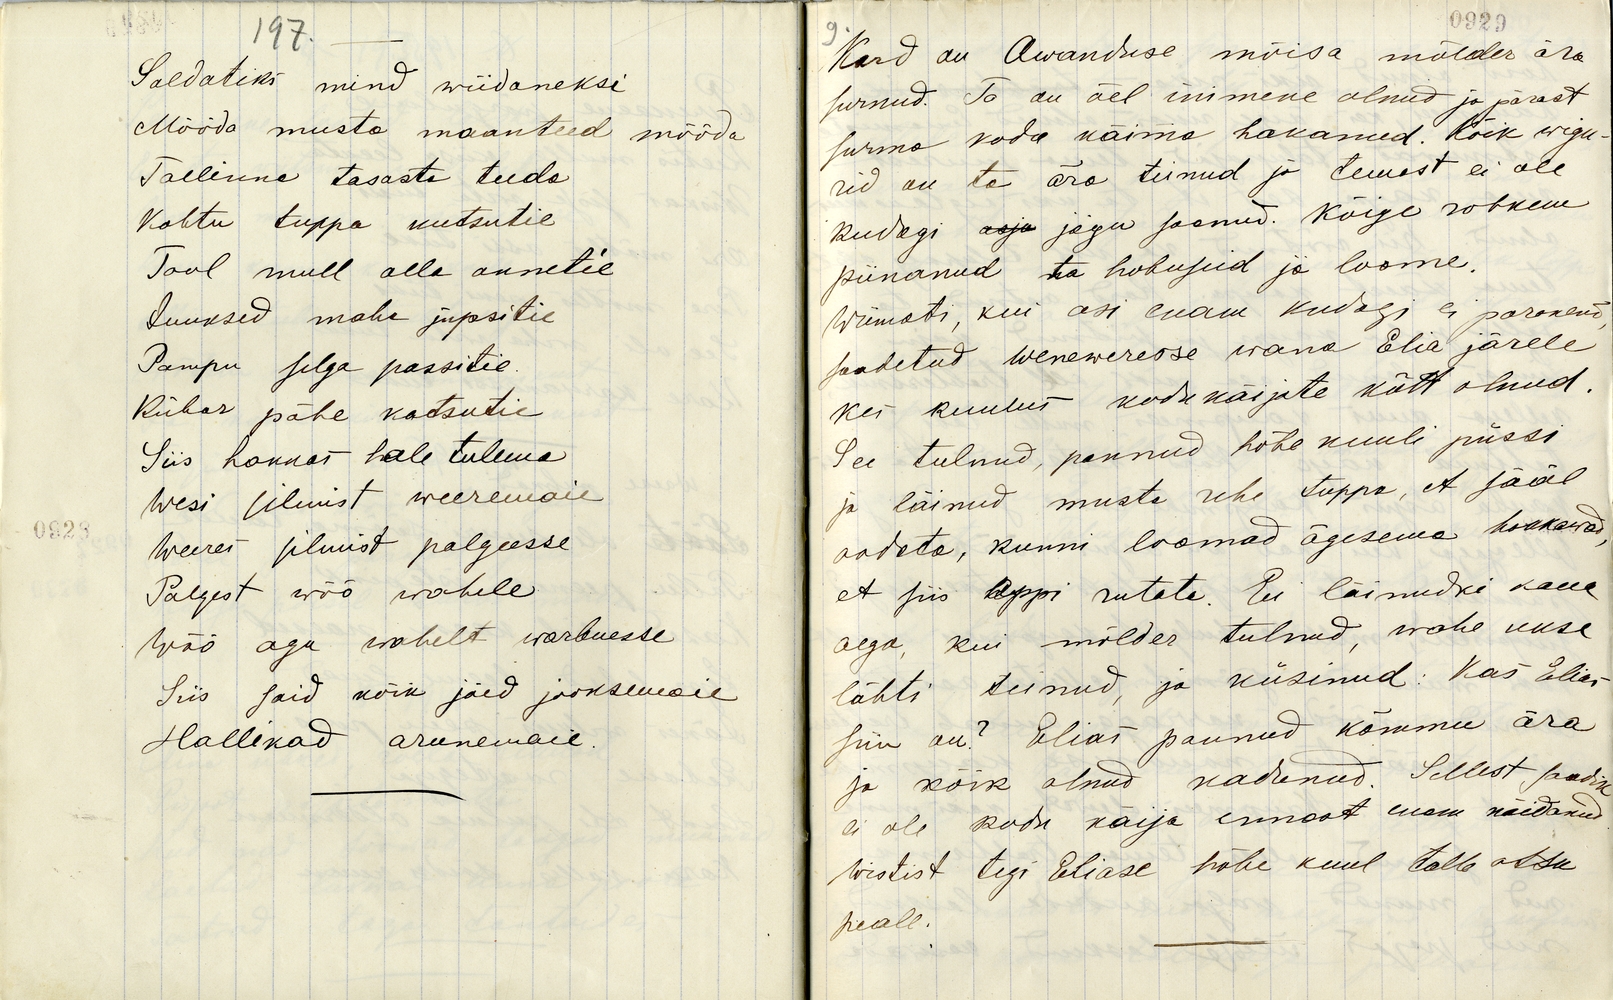 197.
Soldatiks mind wiidaneksi
Mööda musta maanteed mööda
Tallinna tasasta teeda
Kohtu tuppa kutsutie
Tool mull alla annetie
Juuksed maha jupsitie
Pampu selga passitie.
Kübar pähe katsutie
Siis hakkas hale tulema
Wesi silmist weeremaie
Weeres silmist palgeesse
Palgest wöö wahele
Wöö aga wahelt warbuesse
Siis said kõik jõed jooksemaie
Hallikad arunemaie.
0928
0929
9.
Kord on Awanduse mõisa mölder ära
surnud. Ta on õel inimene olnud ja pärast
surma kodu käima hakanud. Kõik wigu-
rid on ta ära teinud ja temast ei ole
kudagi asja jägu saanud. Kõige rohkem
piinanud ta hobuseid ja loome.
Wiimati, kui asi enam kudagi ei paranend,
saadetud Weneweresse wana Elia järele
kes kuulus kodukäijate kütt olnud.
See tulnud, pannud hõbe kuuli püssi
ja läinud musta rehe tuppa, et sääl
oodata, kunni loomad ägisema hakkawad,
et siis appi rutata. Ei läinudki kaua
aega, kui mölder tulnud, wahe ukse
lahti teinud, ja küsinud: Kas Elias
siin on? Elias pannud kõmmu ära
ja kõik olnud kadunud. Sellest saadik
ei ole kodu käija ennast enam näidanud
Wistist tegi Eliase hõbe kuul talle otsa
peale.